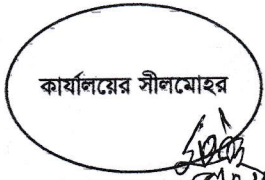 কার্যালয়ের সীলমোহর